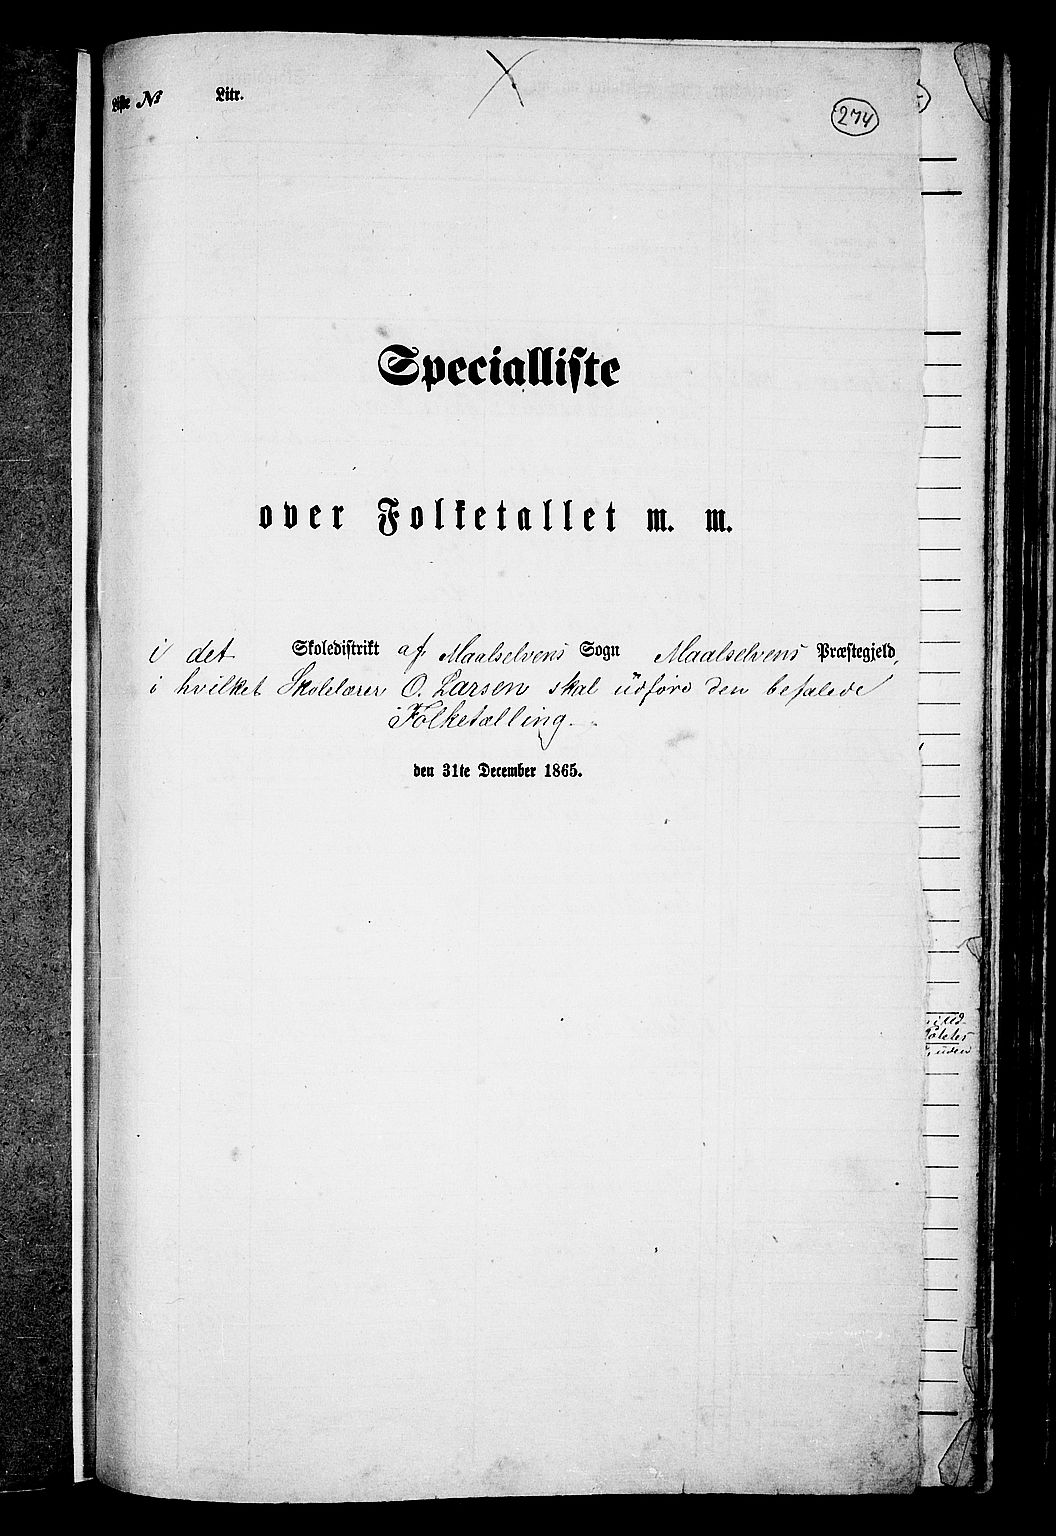 Liste № Litr.
274
Specialliste
over Folketallet m. m.
i det Skoledistrikt af Maalselvens Sogn Maalselvens Præstegjeld,
i hvilket Skolelærer O. Larsen skal udføre den befalede
Folketælling.
den 31te December 1865.
uden